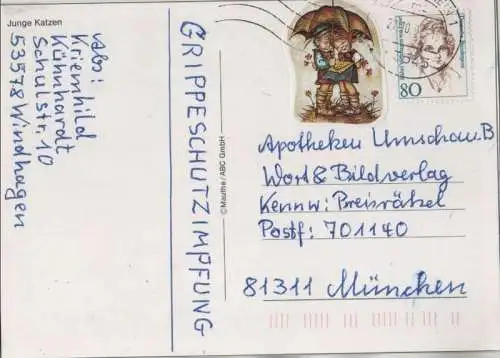 Junge Katzen
Abs:
Kriemhild
Kühnhardt
Schulstr. 10
53578 Windhagen
GRIPPESCHUTZIMPFUNG
© Mauthe / ABC GmbH
80
Apotheken Umschau B
Wort & Bildverlag
Kennw: Preisrätsel
Postf: 701140
81311 München